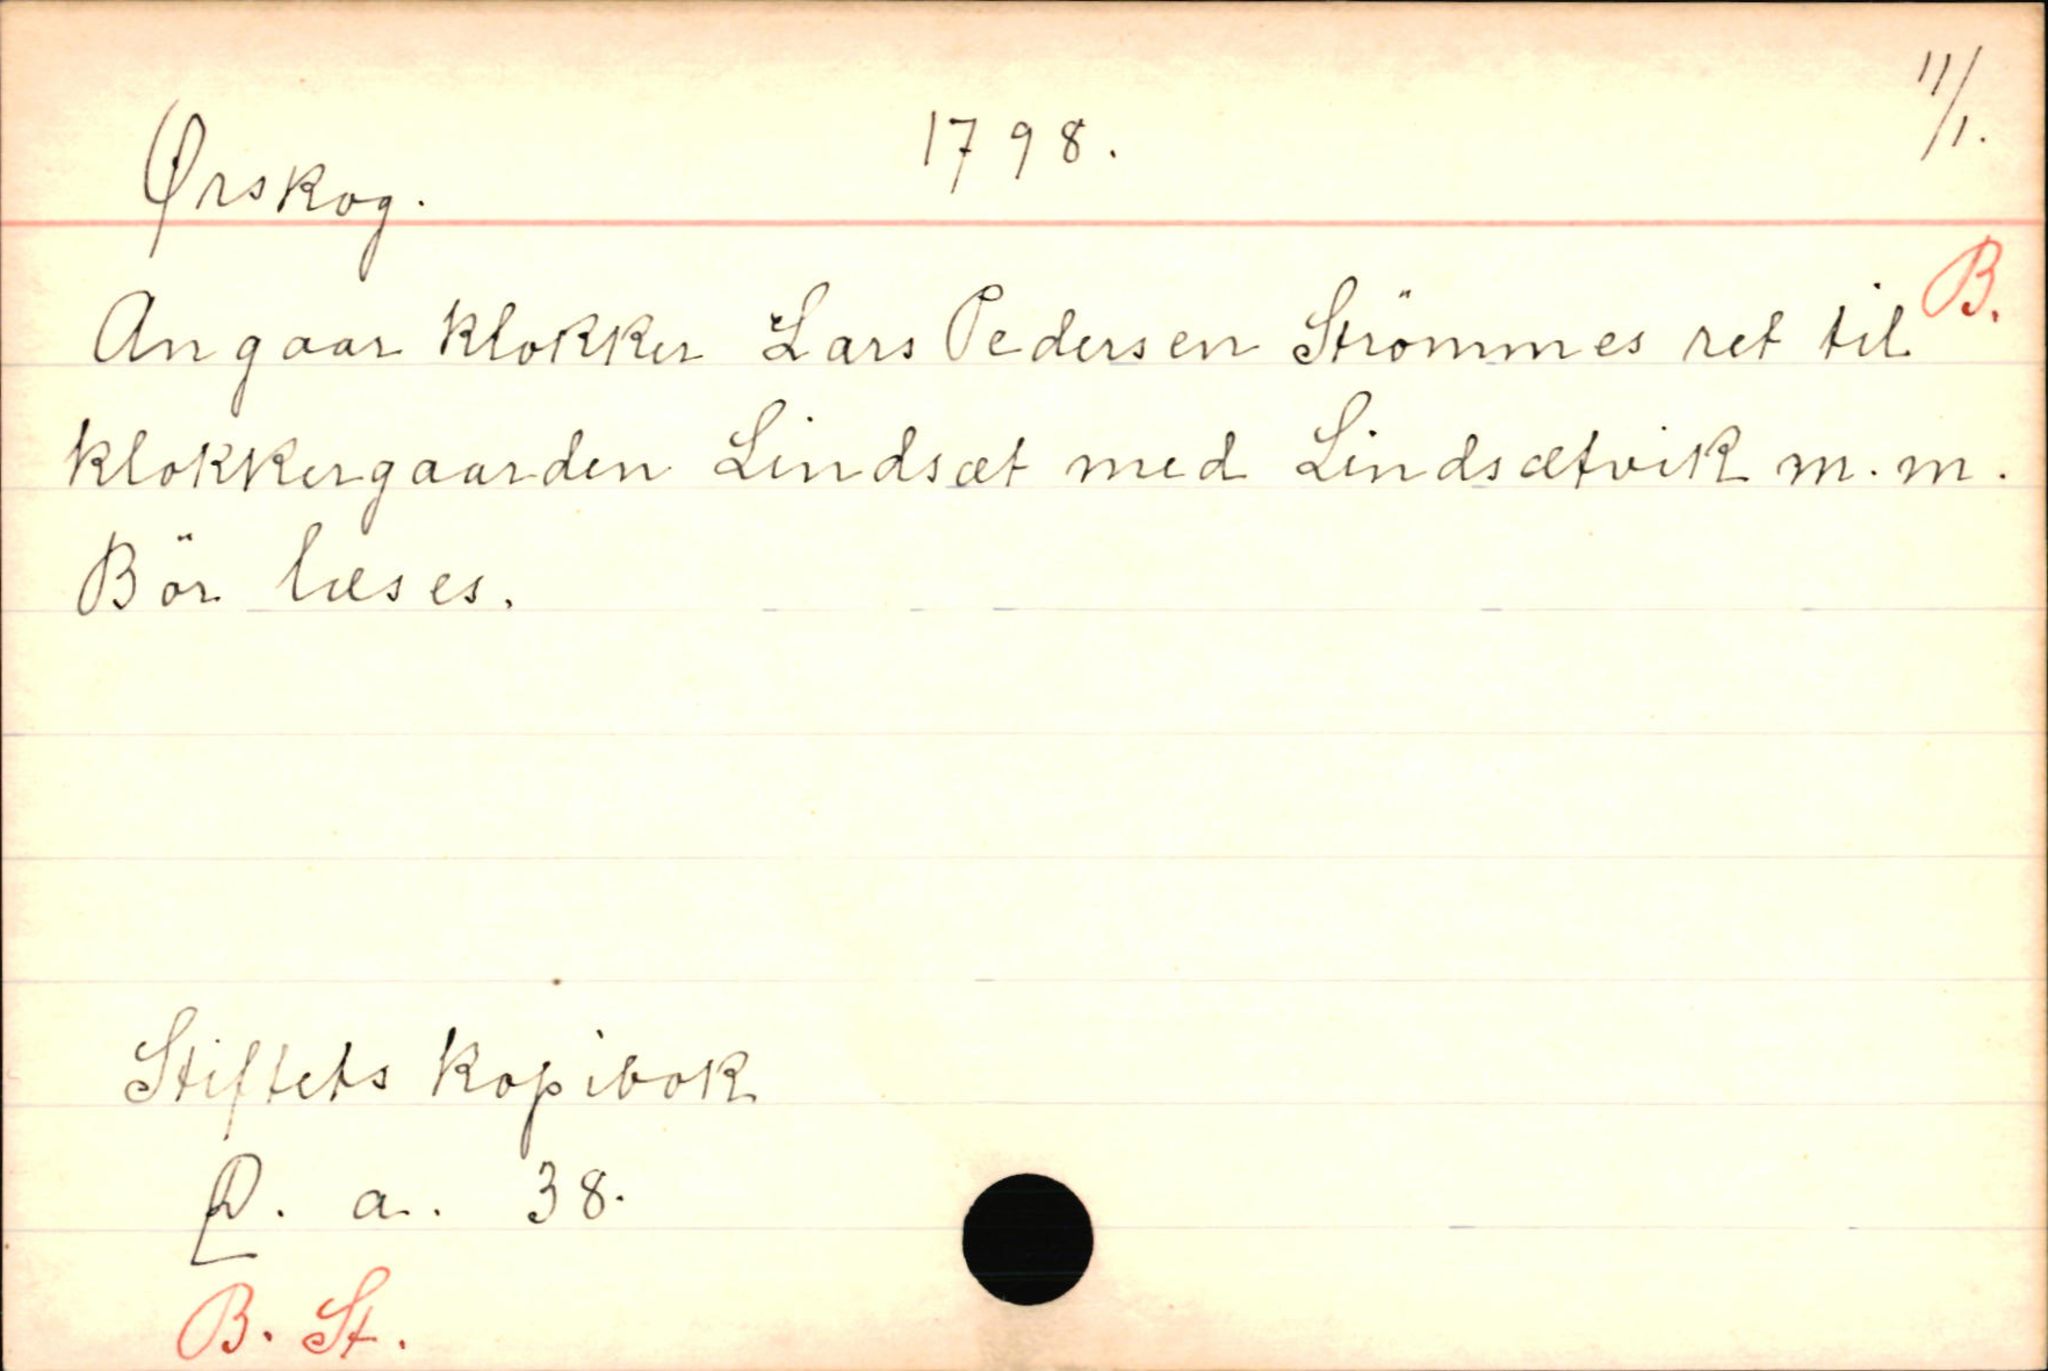 Ørskog. 1798. 11/1.
B.
Angaar klokker Lars Pedersen Strömmes ret til
klokkergaarden Lindsæt med Lindsætvik m.m.
Bör læses.
Stiftets kopibok
a. 38.
B. St.